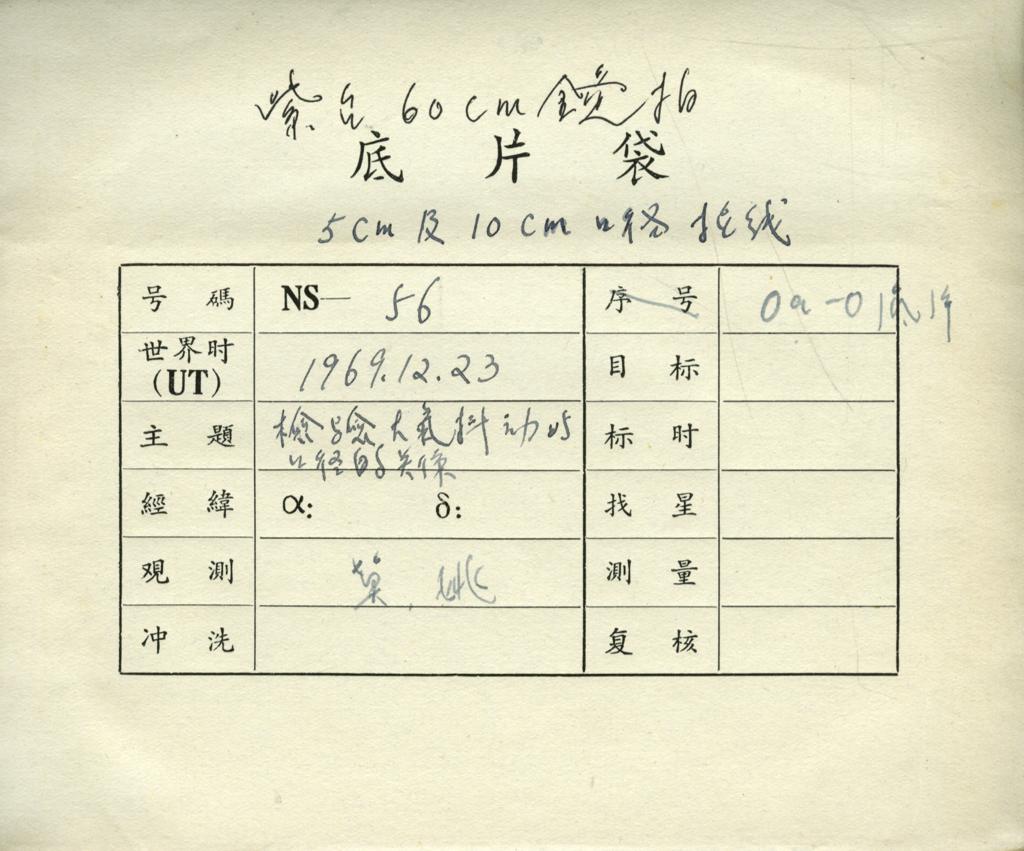 紫台60cm鏡拍
底 片 袋
5cm及10cm口径拖线
号 碼 NS— 56 序 号 0a-0
世界时 (UT) 1969.12.23 目 标
主 題 检验大氣抖动与 标 时
口径的关係
經 緯 α: δ: 找 星
观 測 莫. 姚 測 量
冲 洗 复 核